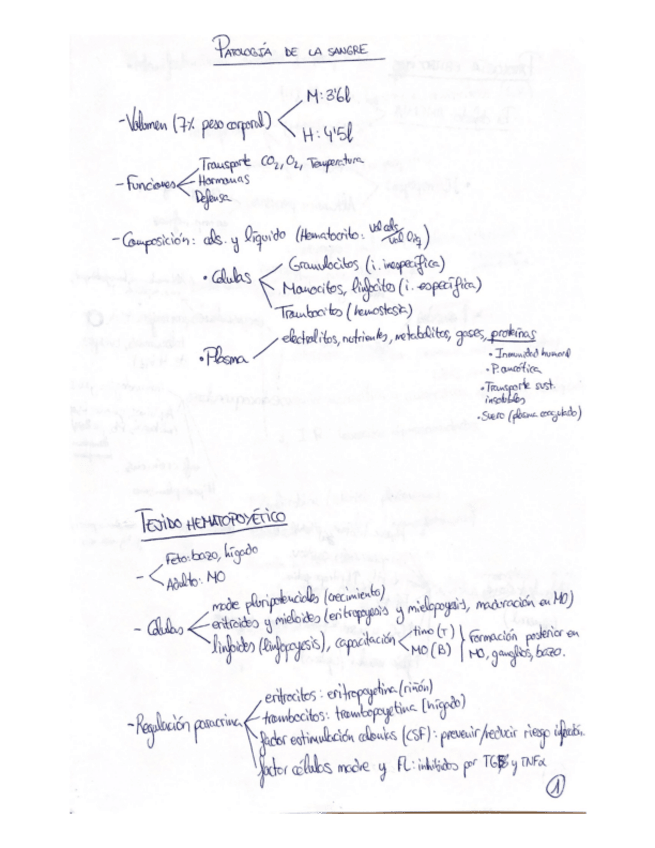 PATOLOGÍA DE LA SANGRE
- Volumen (7% peso corporal)
M: 3'6l
H: 4'5l
- Funciones
Transporte CO2, O2, Temperatura
Hormonas
Defensa
- Composición: cls. y líquido (Hematocrito: vol cls/vol líq)
• Células
Granulocitos (i. inespecífica)
Monocitos, linfocitos (i. específica)
Trombocitos (hemostasia)
• Plasma
electrolitos, nutrientes, metabolitos, gases, proteínas
• Inmunidad humoral
• P. oncótica
• Transporte sust. insolubles
• Suero (plasma coagulado)
TEJIDO HEMATOPOYÉTICO
-
Feto: bazo, hígado
Adulto: MO
- Células
madre pluripotenciales (crecimiento)
eritroides y mieloides (eritropoyesis y mielopoyesis, maduración en MO)
linfoides (linfopoyesis), capacitación
timo (T)
MO (B)
Formación posterior en
MO, ganglios, bazo.
- Regulación paracrina
eritrocitos: eritropoyetina (riñón)
trombocitos: trombopoyetina (hígado)
factor estimulación colonias (CSF): prevenir/reducir riesgo infección.
factor células madre y FL: inhibidos por TGFβ y TNFα
1